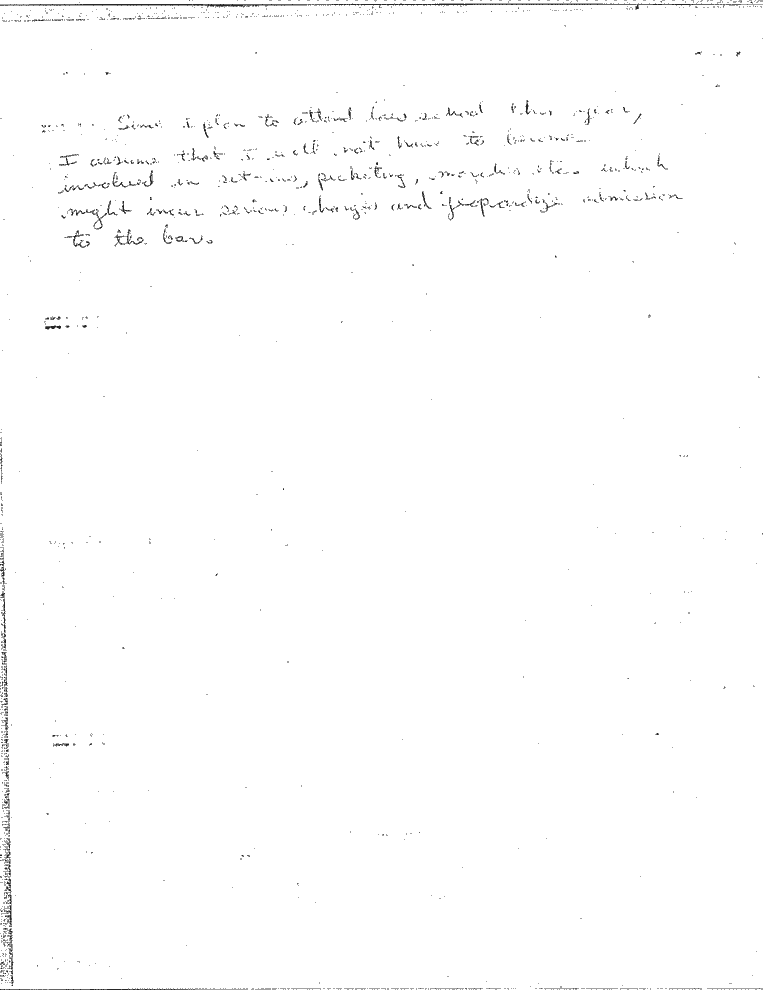 Since I plan to attend law school this year,
I assume that I will not have to become
involved in sit-ins, picketing, marches etc. which
might incur serious charges and jeopardize admission
to the bar.